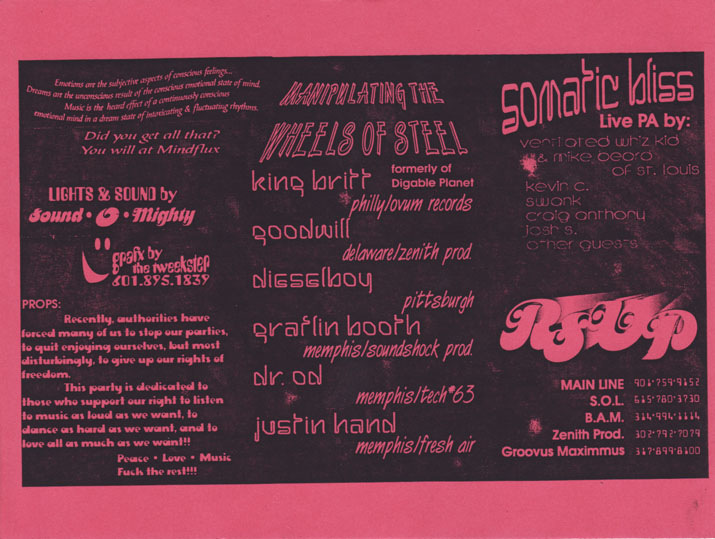 Emotions are the subjective aspects of conscious feelings...
Dreams are the unconscious result of the conscious emotional state of mind.
Music is the heard effect of a continuously conscious
emotional mind in a dream state of intoxicating & fluctuating rhythms.
Did you get all that?
You will at Mindflux
LIGHTS & SOUND by
Sound • O • Mighty
grafx by
the tweekster
601.895.1839
PROPS:
Recently, authorities have
forced many of us to stop our parties,
to quit enjoying ourselves, but most
disturbingly, to give up our rights of
freedom.
This party is dedicated to
those who support our right to listen
to music as loud as we want, to
dance as hard as we want, and to
love all as much as we want!!
Peace • Love • Music
Fuck the rest!!!
MANIPULATING THE
WHEELS OF STEEL
king britt formerly of
Digable Planet
philly/ovum records
goodwill
delaware/zenith prod.
diesselboy
pittsburgh
graflin booth
memphis/soundshock prod.
dr. od
memphis/tech*63
justin hand
memphis/fresh air
somatic bliss
Live PA by:
ventilated whiz kid
& mike beard
of st. louis
kevin c.
swonk
craig anthony
josh s.
other guests
RSVP
MAIN LINE 901•759•9152
S.O.L. 615•780•3730
B.A.M. 314•994•1114
Zenith Prod. 302•792•7079
Groovus Maximmus 317•899•8100